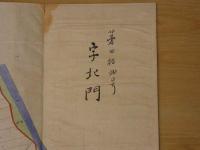 第四拾四号
字北門